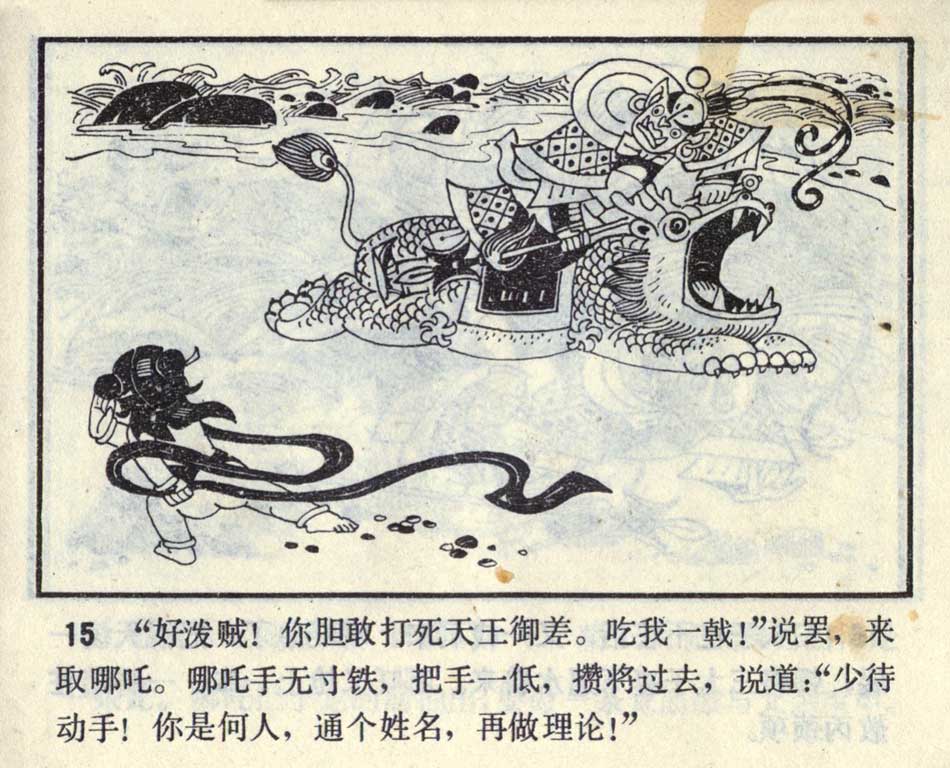 15 “好泼贼！你胆敢打死天王御差。吃我一戟！”说罢，来
取哪吒。哪吒手无寸铁，把手一低，攒将过去，说道：“少待
动手！你是何人，通个姓名，再做理论！”